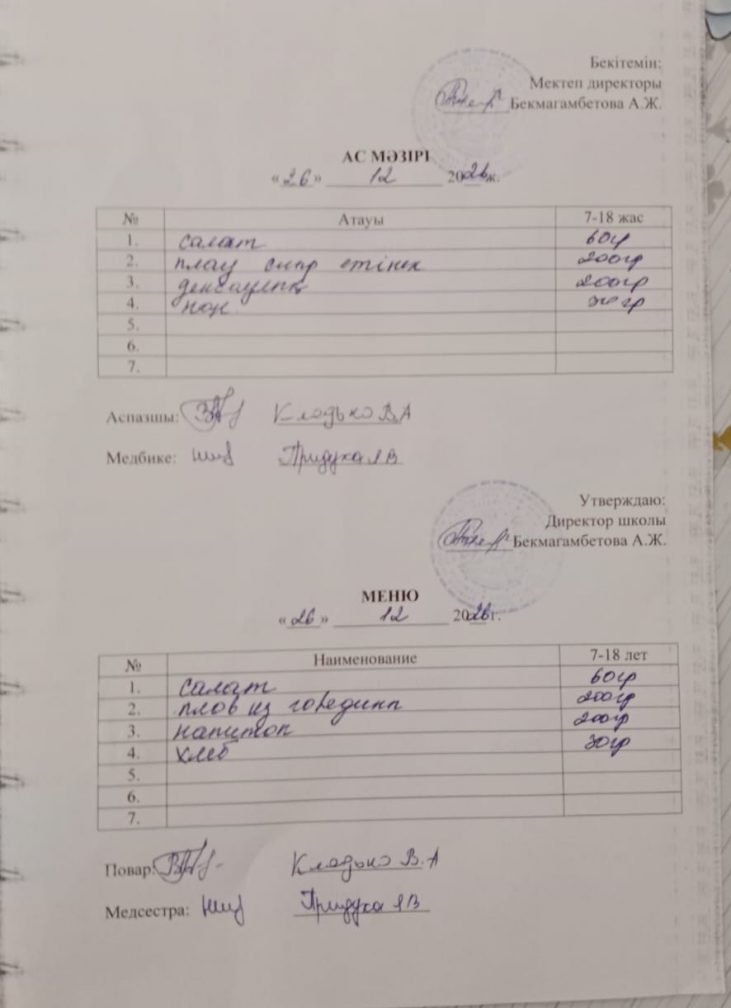 Бекітемін:
Мектеп директоры
Бекмагамбетова А.Ж.
АС МӘЗІРІ
« 26 » 12 2026 ж.
№ Атауы 7-18 жас
1. салат 60гр
2. плау сиыр етінен 200гр
3. 200гр
4. нан 30 гр
5.
6.
7.
Аспазшы: Кладько В.А
Медбике: Придуха Я В
Утверждаю:
Директор школы
Бекмагамбетова А.Ж.
МЕНЮ
« 26 » 12 2026 г.
№ Наименование 7-18 лет
1. салат 60гр
2. плов из говядины 200гр
3. напиток 200гр
4. хлеб 30гр
5.
6.
7.
Повар: Кладько В.А
Медсестра: Придуха Я В